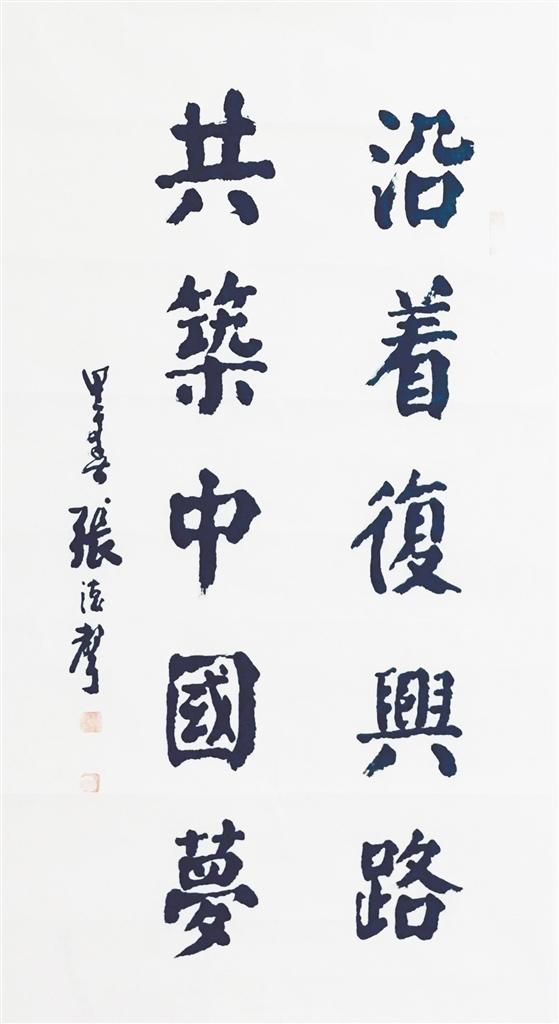 沿着復興路
共築中國夢
張